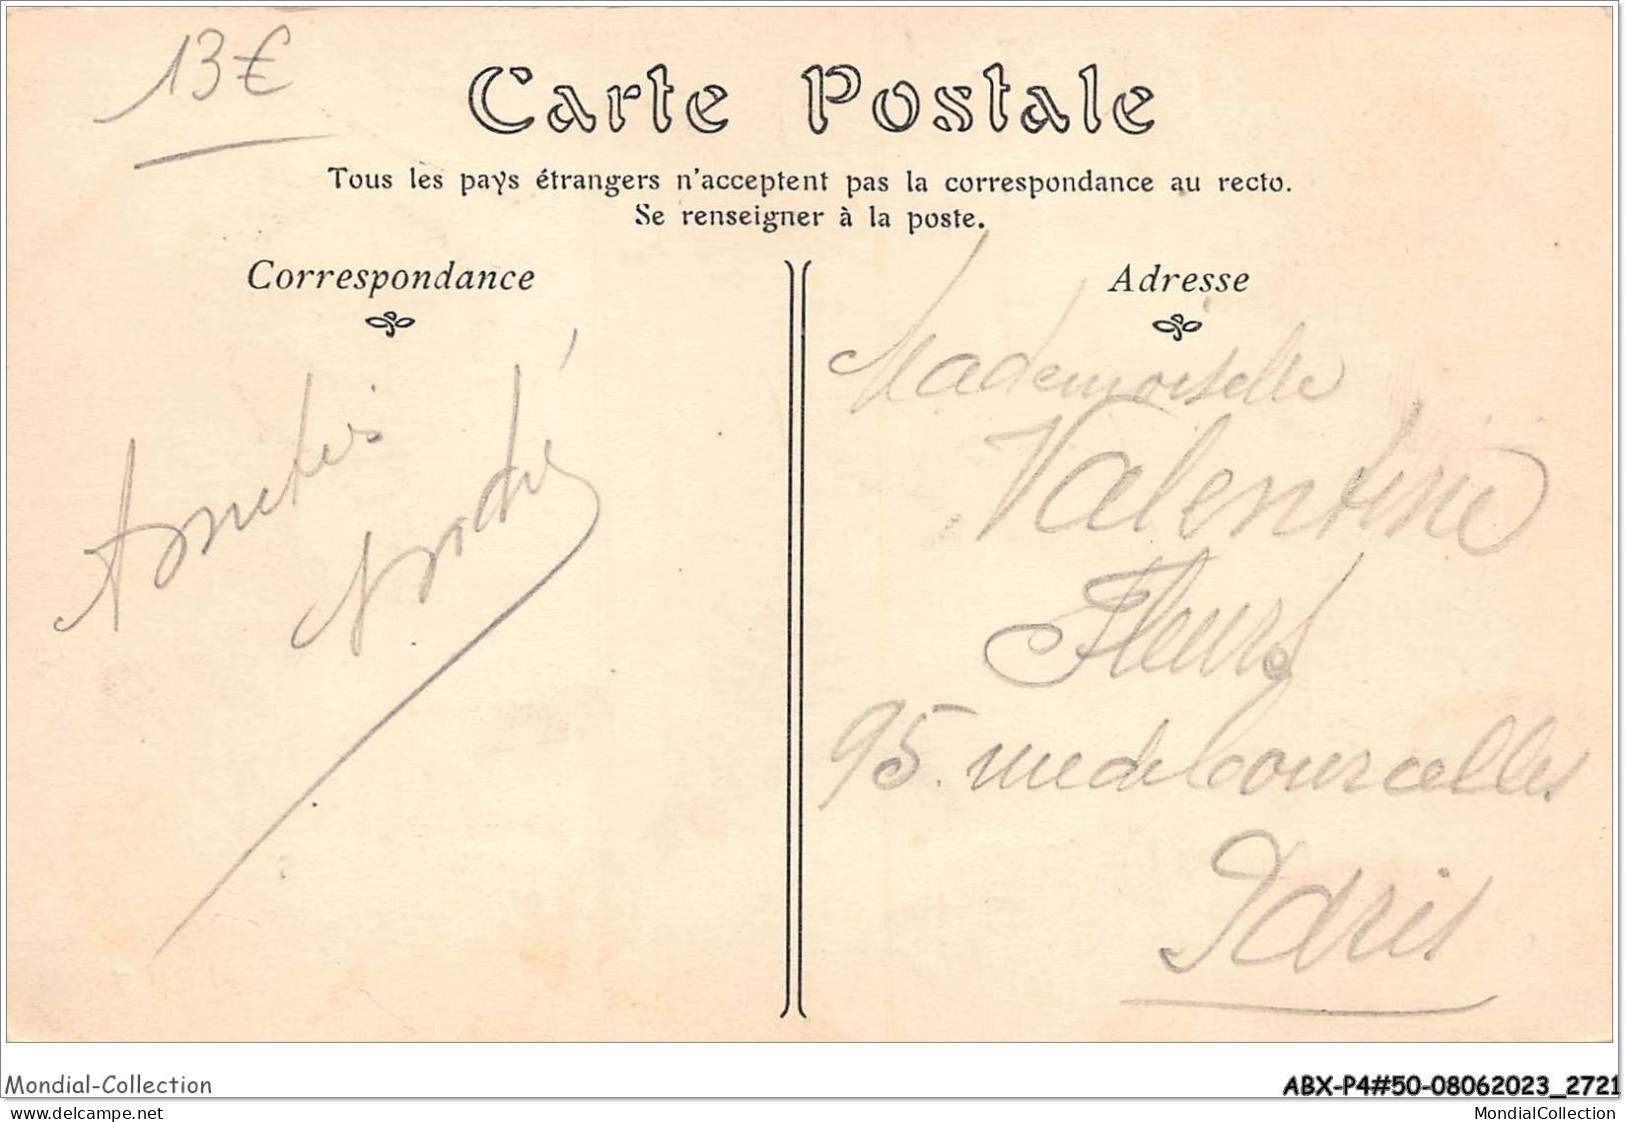 13€
Carte Postale
Tous les pays étrangers n'acceptent pas la correspondance au recto.
Se renseigner à la poste.
Correspondance
Amitiés
André
Adresse
Mademoiselle
Valentine
Fleurs
95. rue de Courcelles
Paris
Mondial-Collection
ABX-P4#50-08062023_2721
www.delcampe.net
MondialCollection